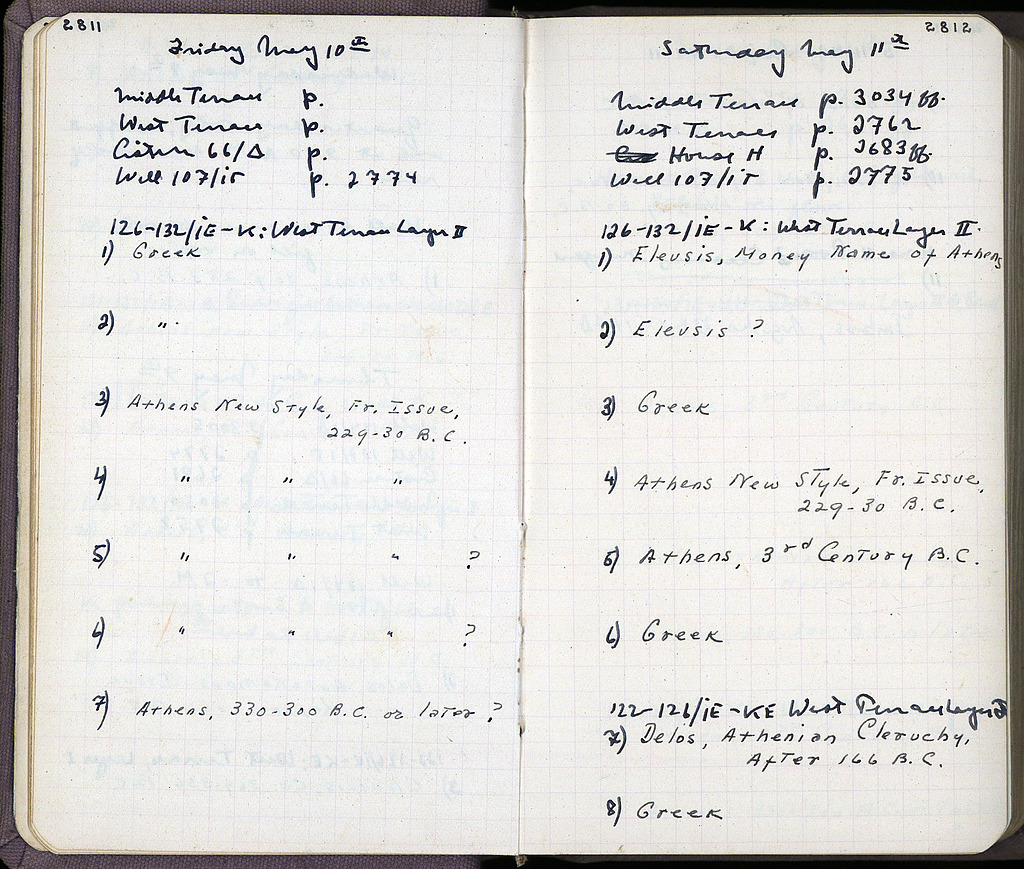 2811
Friday May 10th
Middle Terrace p.
West Terrace p.
Cistern 66/Δ p.
Well 107/ΙΓ p. 2774
126-132/ΙΕ-Κ: West Terrace Layer II
1) Greek
2) "
3) Athens New Style, Fr. Issue,
229-30 B.C.
4) " " "
5) " " " ?
6) " " " ?
7) Athens, 330-300 B.C. or later ?
2812
Saturday May 11th
Middle Terrace p. 3034 ff.
West Terrace p. 2762
House H p. 2683 ff.
Well 107/ΙΓ p. 2775
126-132/ΙΕ-Κ: West Terrace Layer II.
1) Eleusis, Money Name of Athens
2) Eleusis ?
3) Greek
4) Athens New Style, Fr. Issue,
229-30 B.C.
5) Athens, 3rd Century B.C.
6) Greek
122-126/ΙΕ-ΚΕ West Terrace Layer
7) Delos, Athenian Cleruchy,
After 166 B.C.
8) Greek